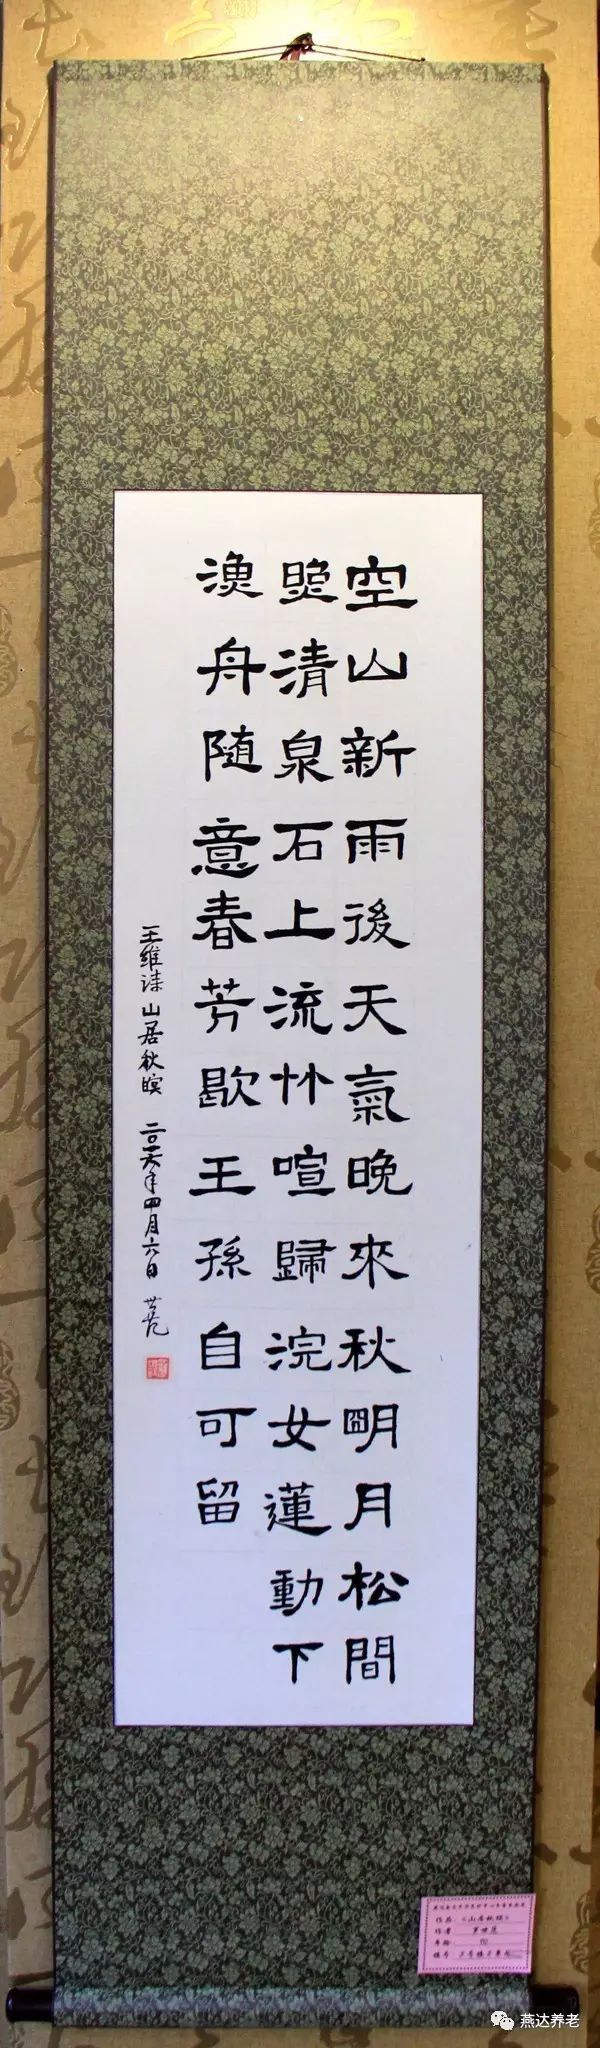 空山新雨後天氣晚來秋朙月松間
照清泉石上流竹喧歸浣女蓮動下
漁舟隨意春芳歇王孫自可留
王維詩山居秋暝 二〇一六年四月六日
作品 《山居秋暝》
作者
年龄 90
燕达养老